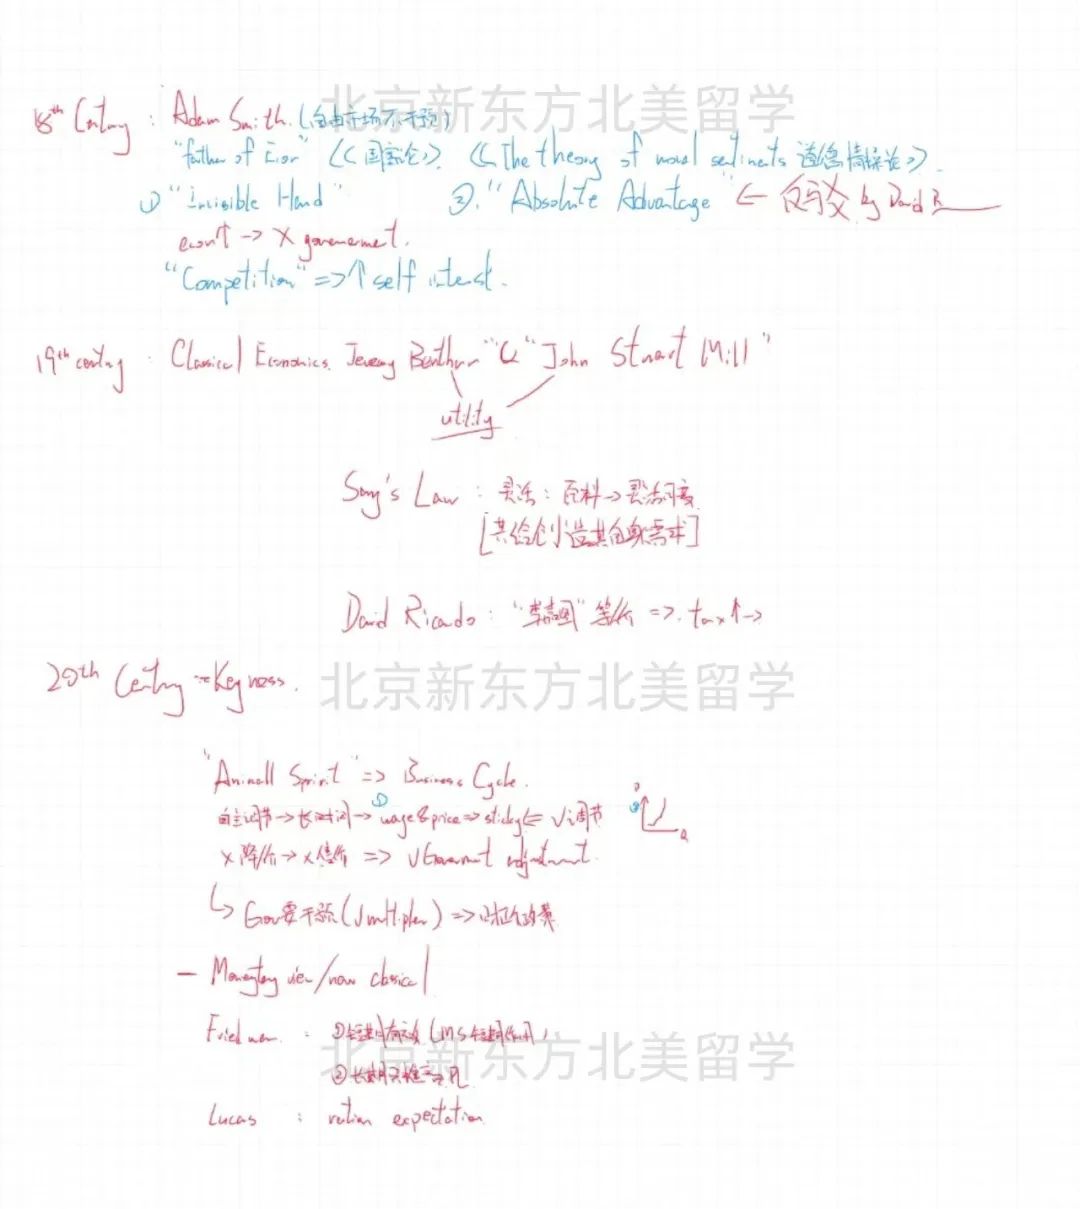 北京新东方北美留学
18th Century : Adam Smith. (自由市场不干预)
"father of Econ" 《国富论》. 《The theory of moral sentiments 道德情操论》.
① "Invisible Hand" ②. "Absolute Advantage" ← by David R
econ↑ → X government.
"Competition" => ↑ self interest.
19th century : Classical Economics. Jeremy Bentham "&" John Stuart Mill"
utility
Say's Law : 灵活 : 原料 → 灵活
[供给创造其自身需求]
David Ricardo : "李嘉图" 等价 => tax↑ →
20th Century
北京新东方北美留学
"Animall Spirit" => Business Cycle.
自主调节 → 长时间 → ① wage & price => sticky <= √调节
P ② Q
X 降价 → X => √ Government adjustment.
↳ Gov要干预 (√ multiplier) => 财政政策
— Monetary view/new classical
Friedman : ①短期有效 (MS短期)
北京新东方北美留学
②长期
Lucas : ration expectation